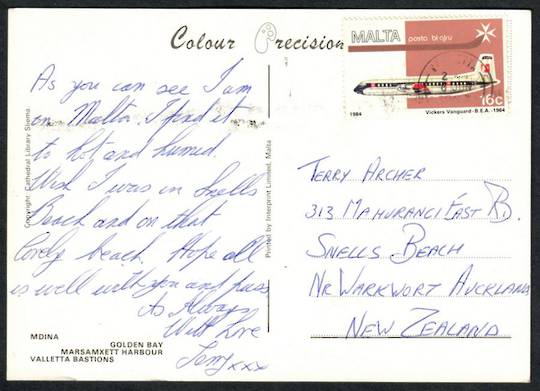 Colour Precision
MALTA posta bl-ajru
16c
1984 Vickers Vanguard - B.E.A. - 1964
As you can see I am
on Malta. I find it
to hot and humid.
Wish I was in Snells
Beach and on that
lovely beach. Hope all
is well with you and
As Always
With Love
xxx
TERRY ARCHER
313 MAHURANGI EAST RD.
SNELLS BEACH
NR WARKWORT AUCKLAND
NEW ZEALAND
Copyright Cathedral Library Sliema
Printed by Interprint Limited, Malta
MDINA
GOLDEN BAY
MARSAMXETT HARBOUR
VALLETTA BASTIONS